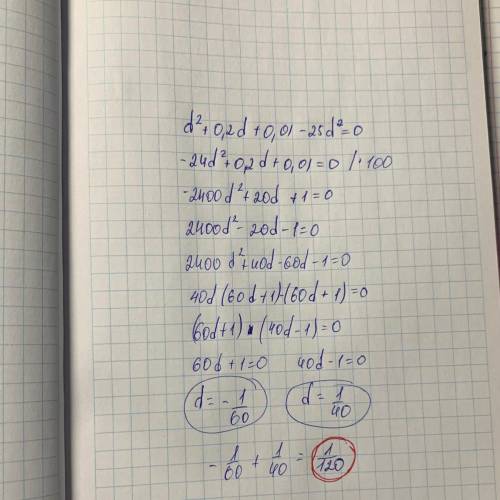 d² + 0,2d + 0,01 - 25d² = 0
-24d² + 0,2d + 0,01 = 0 /·100
-2400d² + 20d + 1 = 0
2400d² - 20d - 1 = 0
2400d² + 40d - 60d - 1 = 0
40d(60d+1)-(60d+1)=0
(60d+1)·(40d-1)=0
60d+1=0 40d-1=0
d = -1/60 d = 1/40
-1/60 + 1/40 = 1/120